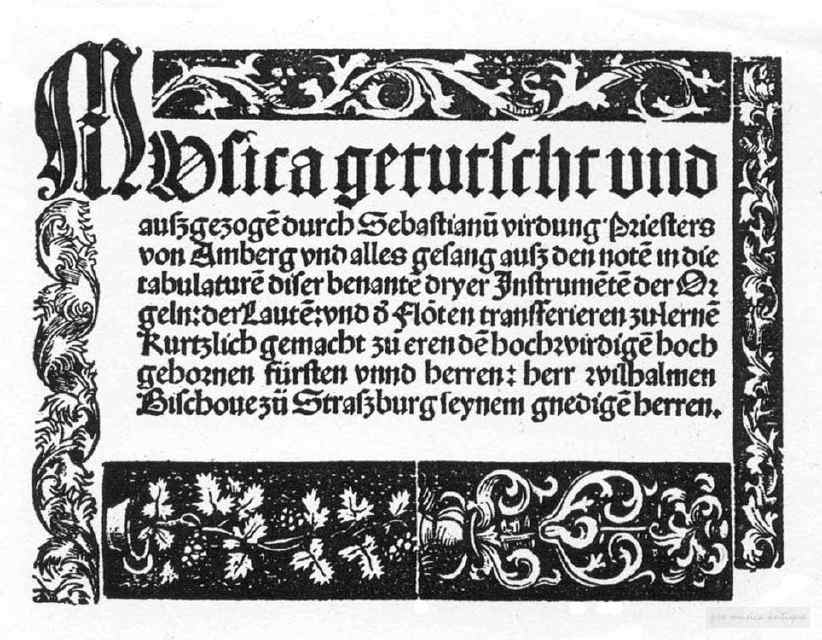 Musica getutscht und
auszgezogē durch Sebastianū virdung Priesters
von Amberg vnd alles gesang ausz den notē in die
tabulaturē diser benantē dryer Instrumētē der Or
geln: der Lautē: vnd d̕ Flöten transferieren zu lernē
Kurtzlich gemacht zu eren dē hochwirdigē hoch
gebornen fürsten vnnd herren: herr wilhalmen
Bischoue zū Straszburg seynem gnedigē herren.
pro musica antiqua